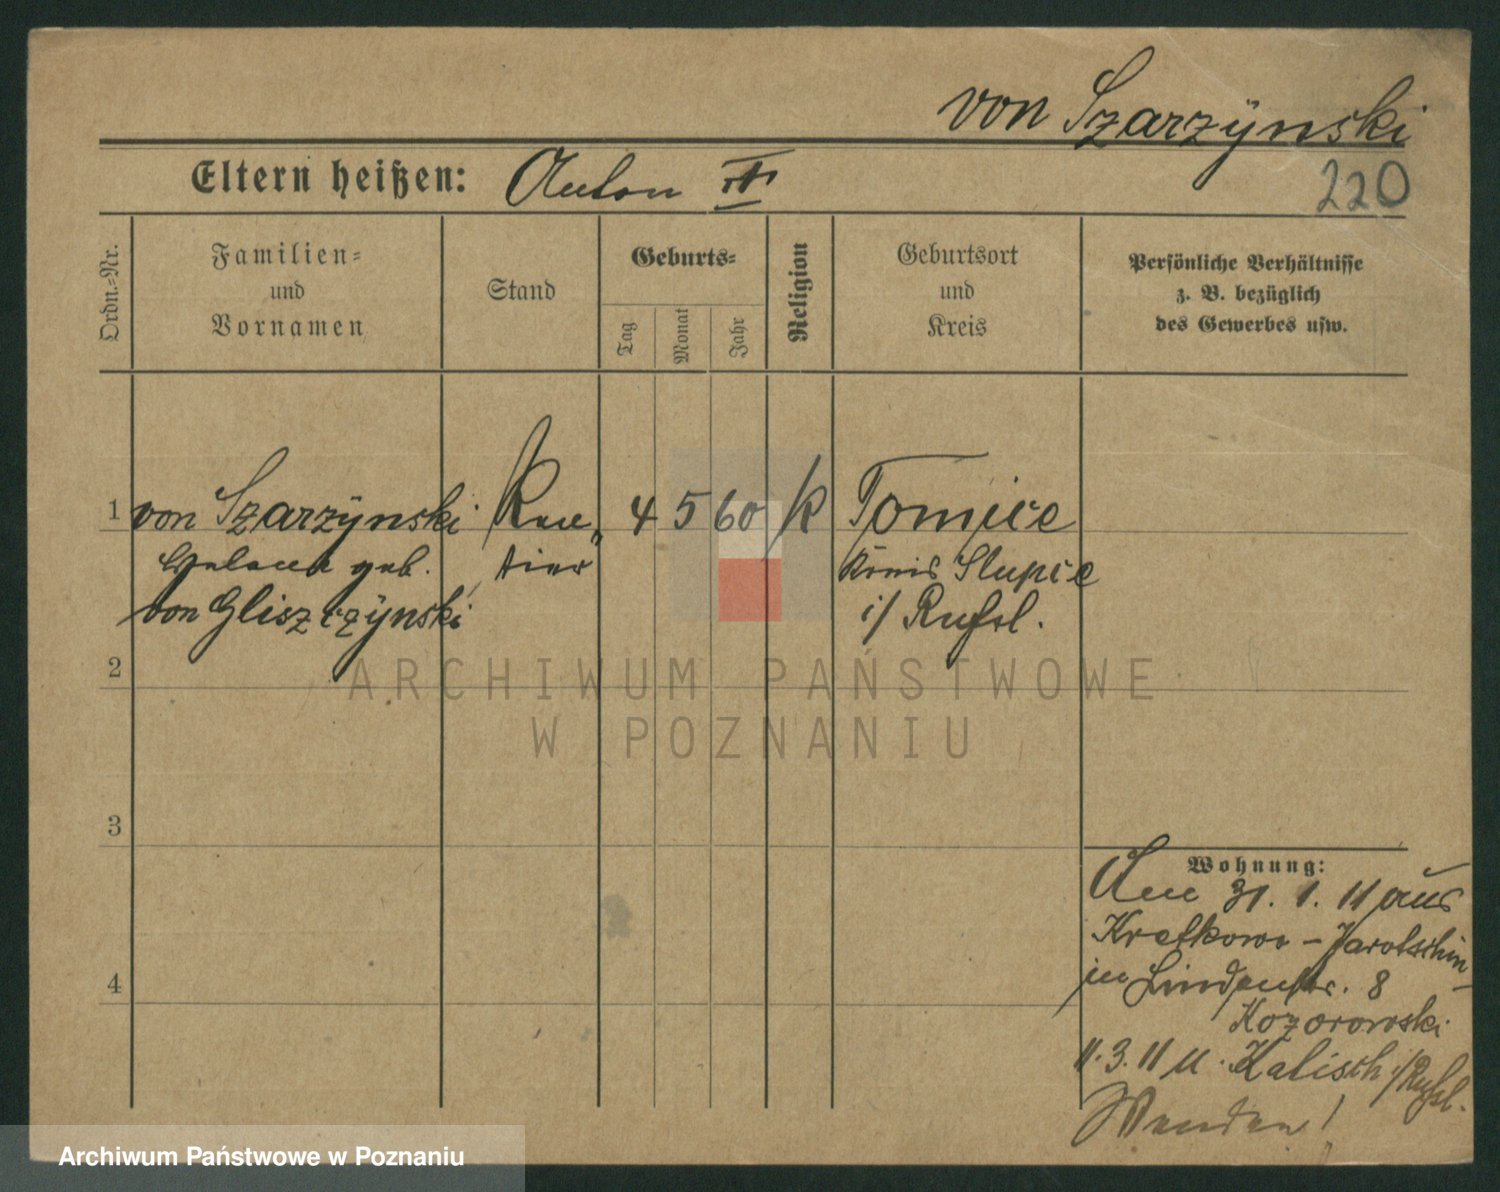 von Szarzÿnski
Eltern heißen: Anton
220
Ordn.-Nr.
Familien-
und
Vornamen
Stand
Geburts-
Tag
Monat
Jahr
Religion
Geburtsort
und
Kreis
Persönliche Verhältnisse
z. B. bezüglich
des Gewerbes usw.
1 von Szarzÿnski Ren- 4 5 60 k Tomice
Helena geb. tier Kreis Slupce
von Gliszczÿnski i/ Rußl.
2
ARCHIWUM PAŃSTWOWE
W POZNANIU
3
Wohnung:
Am 31. 1. 11 aus
Kretkowo - Jarotschin
in Lindenstr. 8
4
Kozorowski
11. 3. 11 n. Kalisch i/Rußl.
Wenden!
Archiwum Państwowe w Poznaniu